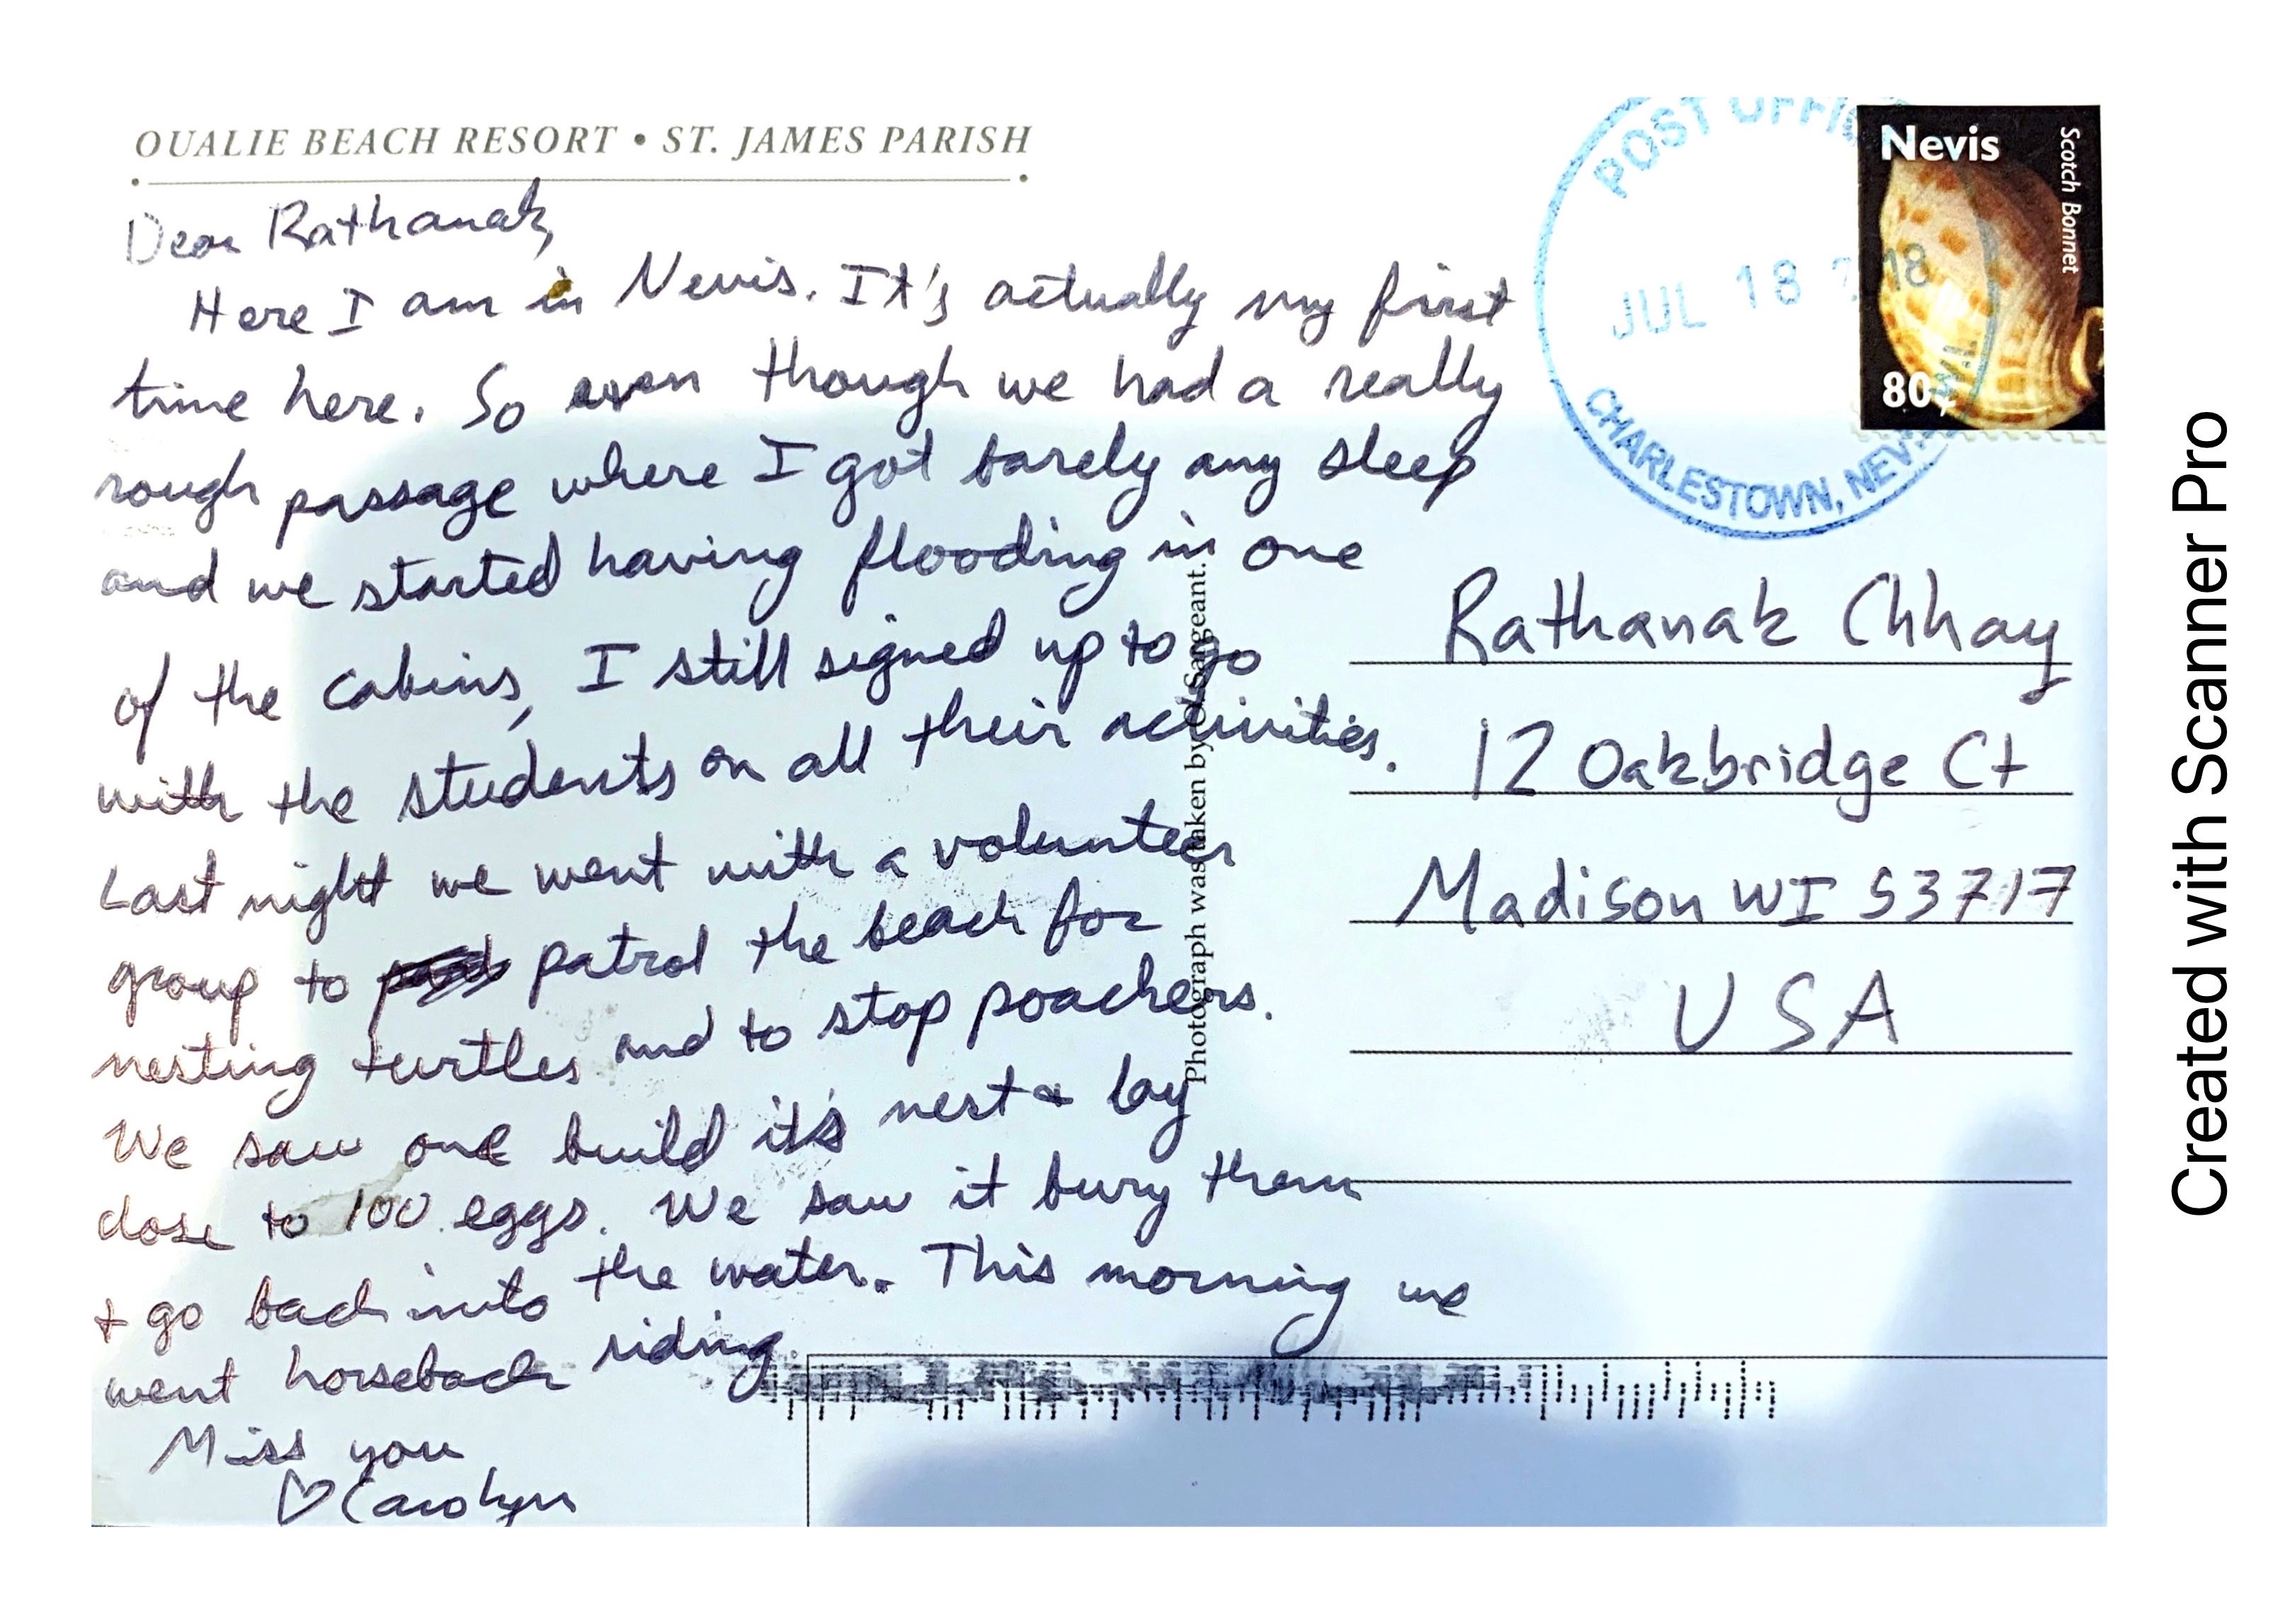 OUALIE BEACH RESORT • ST. JAMES PARISH
Dear Rathanak,
Here I am in Nevis. It's actually my first
time here. So even though we had a really
rough passage where I got barely any sleep
and we started having flooding in one
of the cabins, I still signed up to go
with the students on all their activities.
Last night we went with a volunteer
group to patrol the beach for
nesting turtles and to stop poachers.
We saw one build it's nest & lay
close to 100 eggs. We saw it bury them
& go back into the water. This morning we
went horseback riding
Miss you
♡ Carolyn
Photograph was taken by Sargeant.
POST OFFIC
JUL 18 18
CHARLESTOWN, NEV
Nevis
Scotch Bonnet
80¢
Rathanak Chhay
12 Oakbridge Ct
Madison WI 53717
USA
Created with Scanner Pro